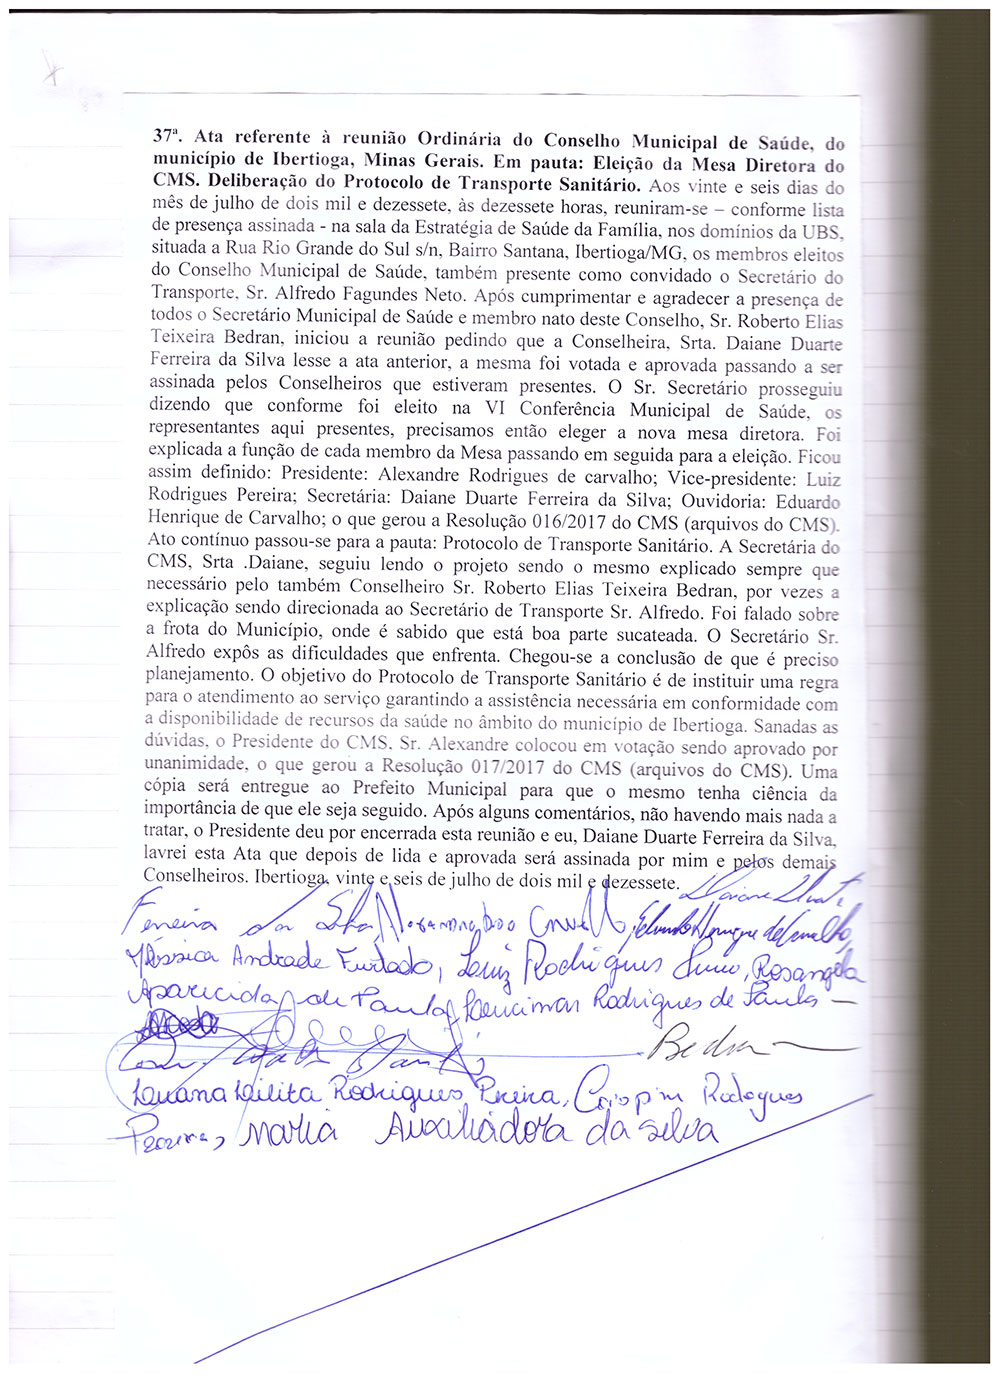 37ª. Ata referente à reunião Ordinária do Conselho Municipal de Saúde, do
município de Ibertioga, Minas Gerais. Em pauta: Eleição da Mesa Diretora do
CMS. Deliberação do Protocolo de Transporte Sanitário. Aos vinte e seis dias do
mês de julho de dois mil e dezessete, às dezessete horas, reuniram-se – conforme lista
de presença assinada - na sala da Estratégia de Saúde da Família, nos domínios da UBS,
situada a Rua Rio Grande do Sul s/n, Bairro Santana, Ibertioga/MG, os membros eleitos
do Conselho Municipal de Saúde, também presente como convidado o Secretário do
Transporte, Sr. Alfredo Fagundes Neto. Após cumprimentar e agradecer a presença de
todos o Secretário Municipal de Saúde e membro nato deste Conselho, Sr. Roberto Elias
Teixeira Bedran, iniciou a reunião pedindo que a Conselheira, Srta. Daiane Duarte
Ferreira da Silva lesse a ata anterior, a mesma foi votada e aprovada passando a ser
assinada pelos Conselheiros que estiveram presentes. O Sr. Secretário prosseguiu
dizendo que conforme foi eleito na VI Conferência Municipal de Saúde, os
representantes aqui presentes, precisamos então eleger a nova mesa diretora. Foi
explicada a função de cada membro da Mesa passando em seguida para a eleição. Ficou
assim definido: Presidente: Alexandre Rodrigues de carvalho; Vice-presidente: Luiz
Rodrigues Pereira; Secretária: Daiane Duarte Ferreira da Silva; Ouvidoria: Eduardo
Henrique de Carvalho; o que gerou a Resolução 016/2017 do CMS (arquivos do CMS).
Ato contínuo passou-se para a pauta: Protocolo de Transporte Sanitário. A Secretária do
CMS, Srta .Daiane, seguiu lendo o projeto sendo o mesmo explicado sempre que
necessário pelo também Conselheiro Sr. Roberto Elias Teixeira Bedran, por vezes a
explicação sendo direcionada ao Secretário de Transporte Sr. Alfredo. Foi falado sobre
a frota do Município, onde é sabido que está boa parte sucateada. O Secretário Sr.
Alfredo expôs as dificuldades que enfrenta. Chegou-se a conclusão de que é preciso
planejamento. O objetivo do Protocolo de Transporte Sanitário é de instituir uma regra
para o atendimento ao serviço garantindo a assistência necessária em conformidade com
a disponibilidade de recursos da saúde no âmbito do município de Ibertioga. Sanadas as
dúvidas, o Presidente do CMS, Sr. Alexandre colocou em votação sendo aprovado por
unanimidade, o que gerou a Resolução 017/2017 do CMS (arquivos do CMS). Uma
cópia será entregue ao Prefeito Municipal para que o mesmo tenha ciência da
importância de que ele seja seguido. Após alguns comentários, não havendo mais nada a
tratar, o Presidente deu por encerrada esta reunião e eu, Daiane Duarte Ferreira da Silva,
lavrei esta Ata que depois de lida e aprovada será assinada por mim e pelos demais
Conselheiros. Ibertioga, vinte e seis de julho de dois mil e dezessete. Daiane Duarte
Ferreira da Silva, Eduardo Henrique de Carvalho,
Andrade Furtado, Luiz Rodrigues, Rosangela
Aparecida de Paula, Lucimar Rodrigues de Paula
Bedran
Luana Rodrigues Pereira, Crispim Rodrigues
Pereira, Maria Auxiliadora da Silva